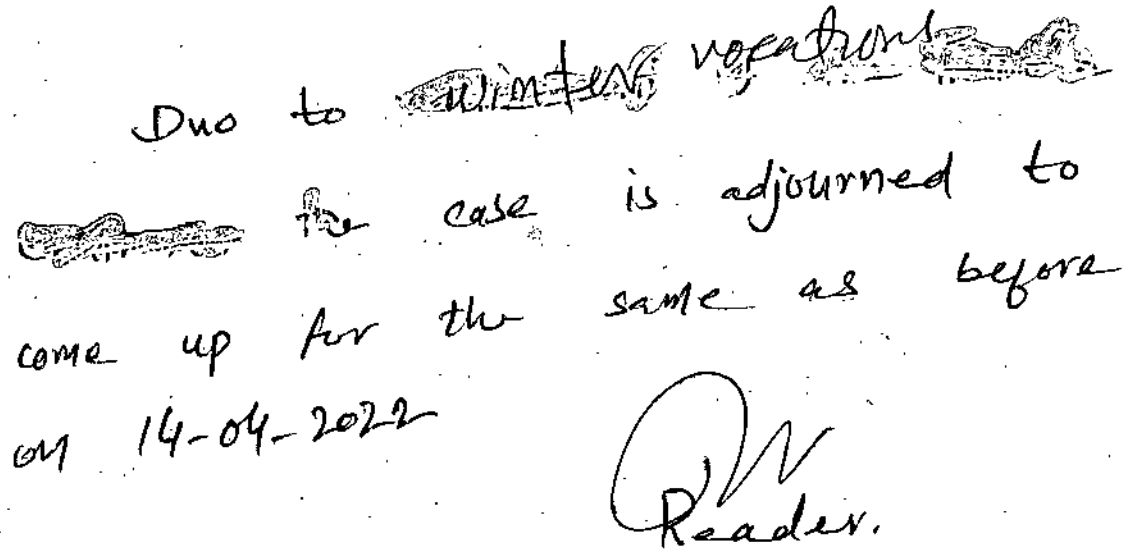 Due to winter vacations
the case is adjourned to
come up for the same as before
on 14-04-2022
Reader.